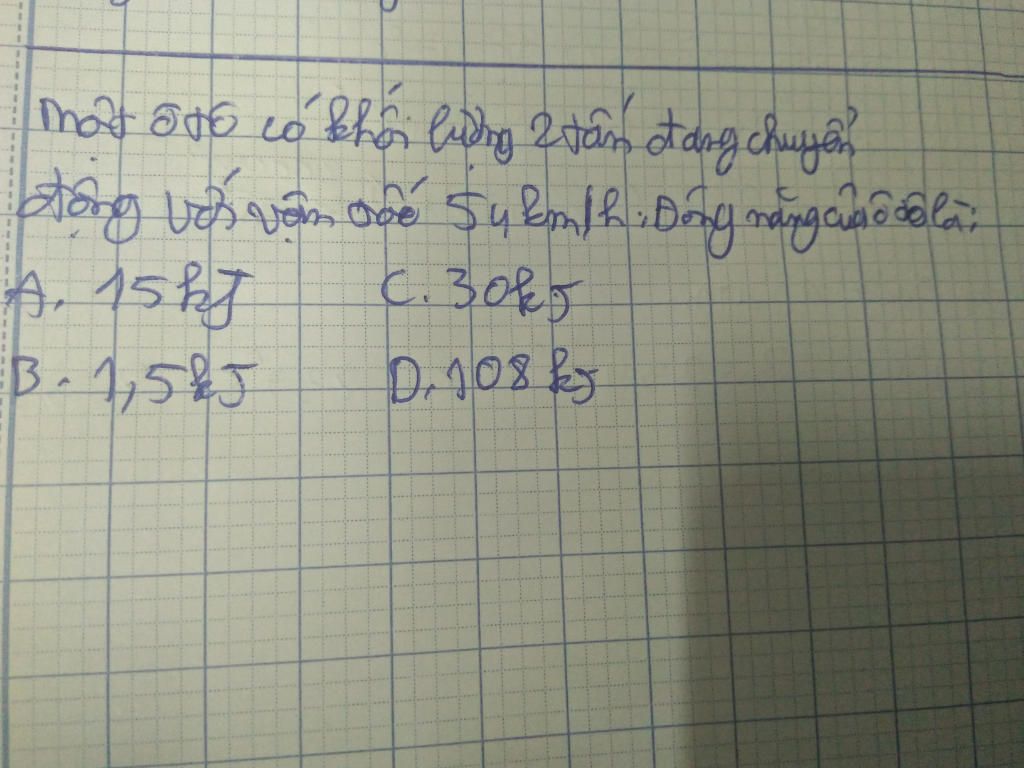 Một ô tô có khối lượng 2 tấn đang chuyển
động với vận tốc 54km/h. Động năng của ô tô là:
A. 15kJ C. 30kJ
B. 1,5kJ D. 108kJ